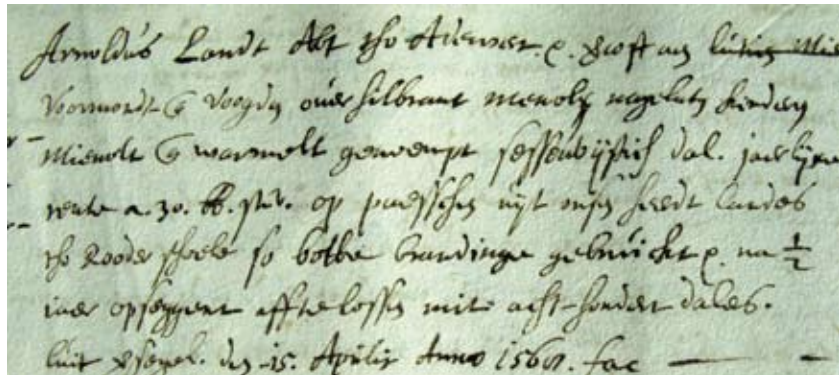 Arnoldus Landt Abt tho Aduwert. p. vercoft an
Voormondt & Voogden over Hilbrant Menolz nagelaten kinderen
Mienolt & Warmolt genoempt sessenvijftich dal. jaerlyxe
rente a. 30. bb. stv. op paesschen uyt mijn heerdt landes
tho Rooderschoele so botke brandinge gebruickt p. na 1/2
iaer opseggent afftelossen mit acht-hondert dalers.
luit versegel. den 15. Aprilis Anno 1560. fac